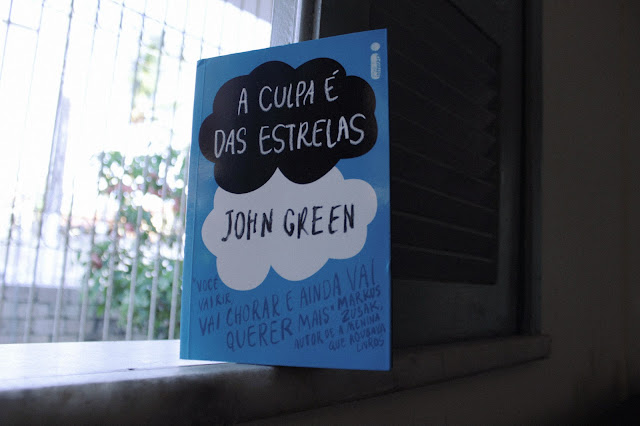 A CULPA É
DAS ESTRELAS
JOHN GREEN
"VOCÊ
VAI RIR,
VAI CHORAR E AINDA VAI
QUERER MAIS" MARKUS
ZUSAK,
AUTOR DE A MENINA
QUE ROUBAVA
LIVROS